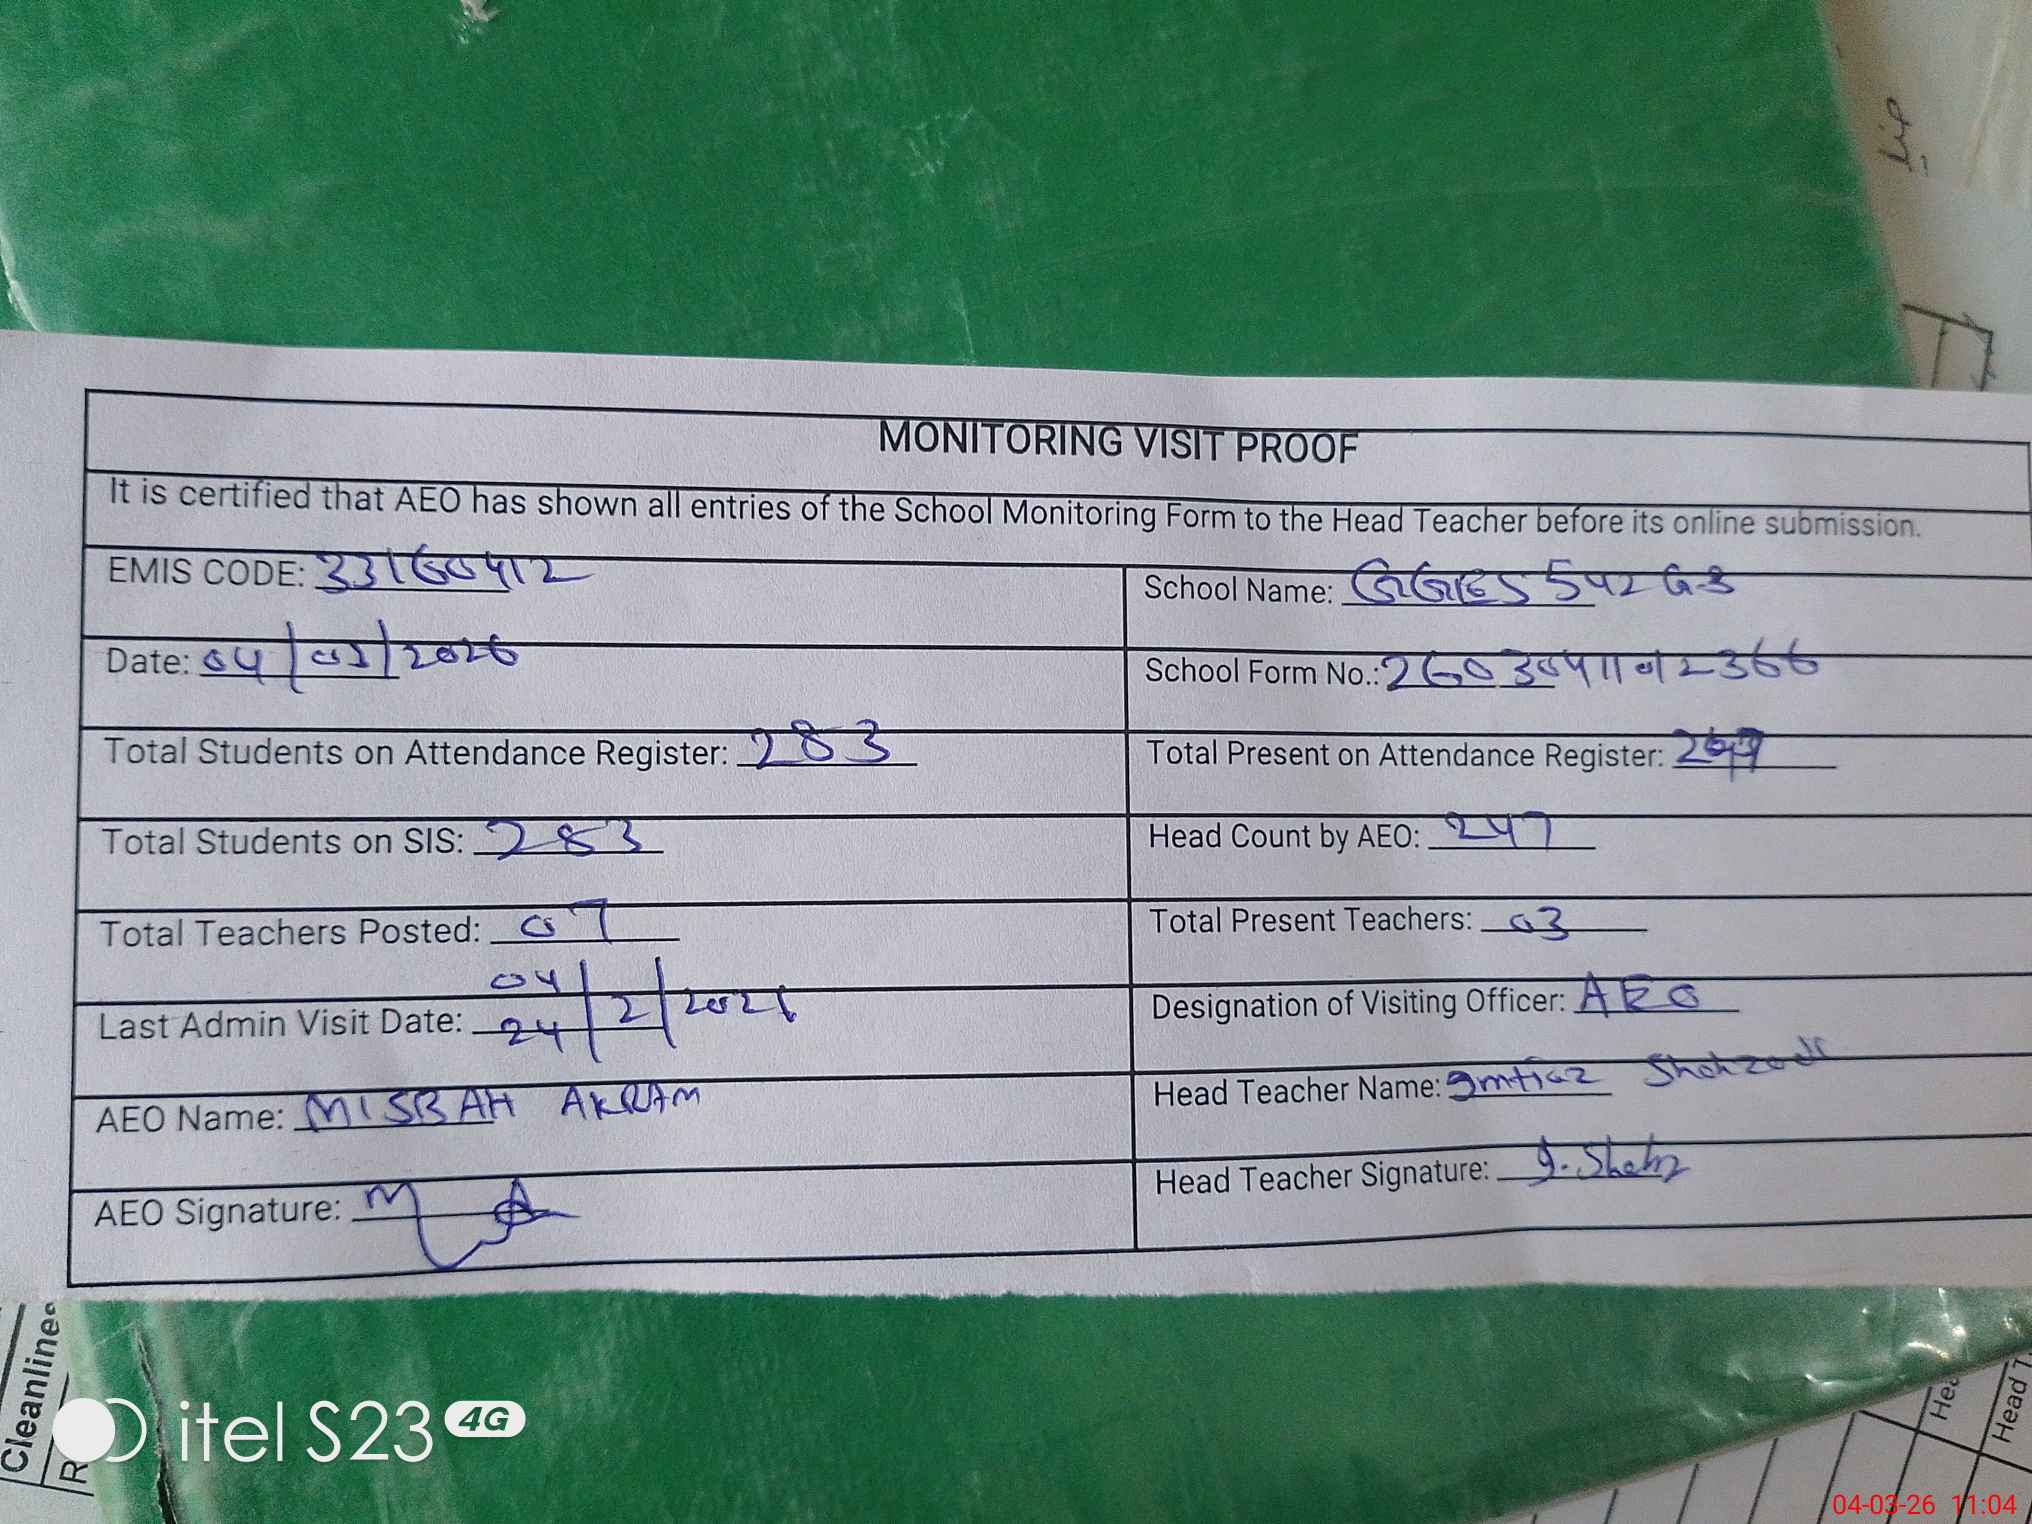 Lip
MONITORING VISIT PROOF
It is certified that AEO has shown all entries of the School Monitoring Form to the Head Teacher before its online submission.
EMIS CODE: 33160412
School Name: GGES 542 GB
Date: 04/03/2026
School Form No.: 26030411012366
Total Students on Attendance Register: 283
Total Present on Attendance Register:
Total Students on SIS: 283
Head Count by AEO: 247
Total Teachers Posted: 07
Total Present Teachers: 03
04
Last Admin Visit Date: 24/2/2026
Designation of Visiting Officer: AEO
AEO Name: MISBAH AKRAM
Head Teacher Name: Imtiaz Shahzadi
AEO Signature: M A
Head Teacher Signature: I. Shahz
Cleanlines
R
itel S23 4G
Hea
Head T
04-03-26 11:04